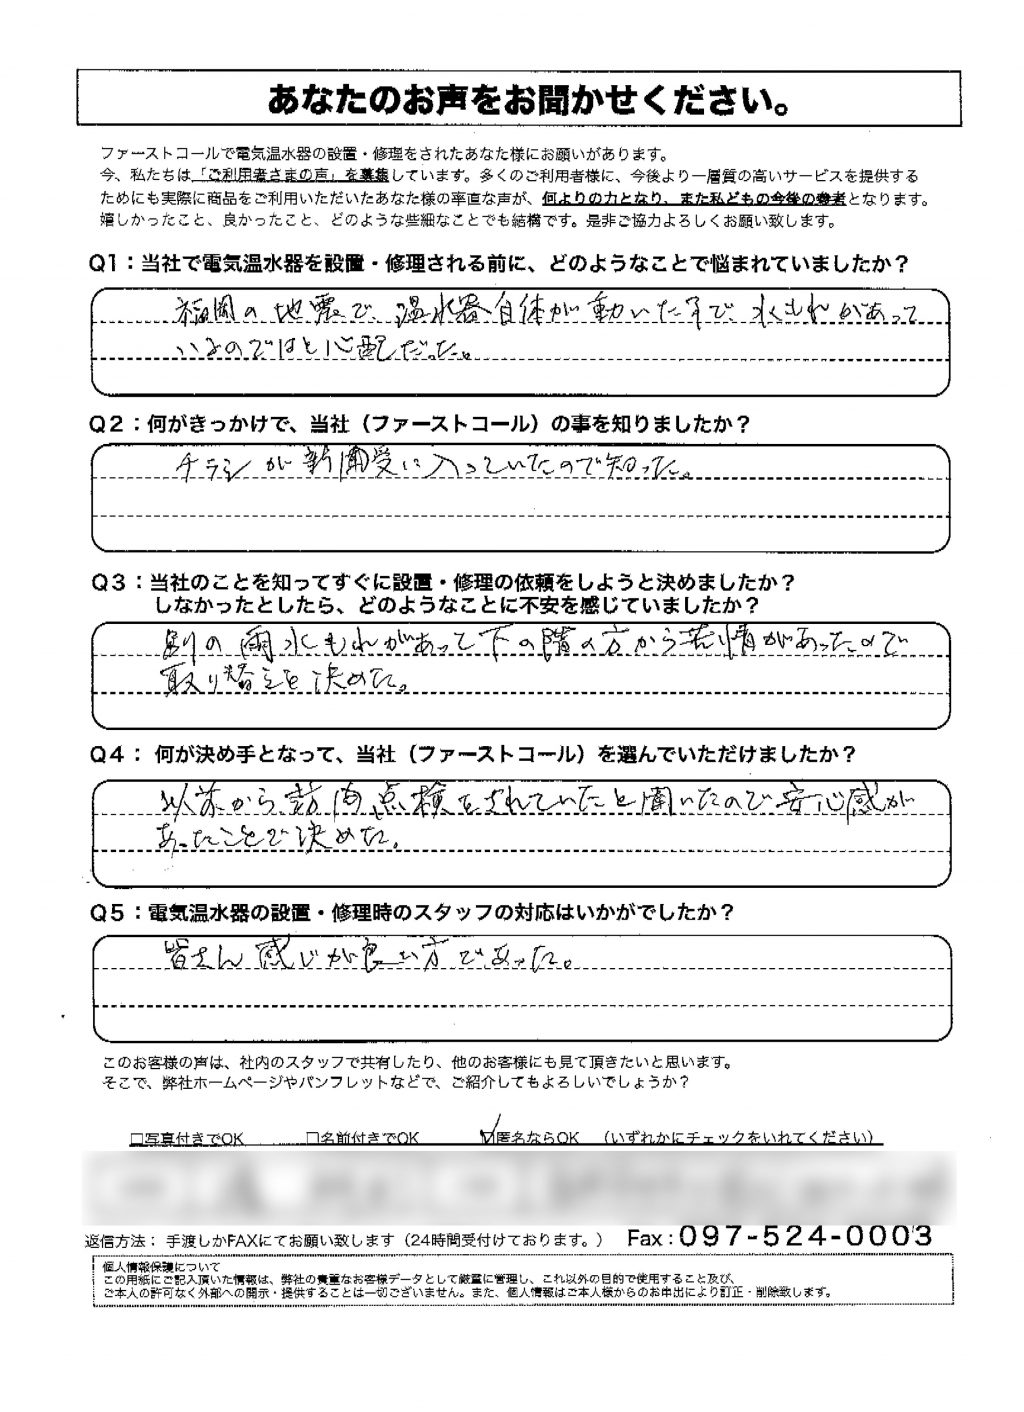 あなたのお声をお聞かせください。
ファーストコールで電気温水器の設置・修理をされたあなた様にお願いがあります。
今、私たちは「ご利用者さまの声」を募集しています。多くのご利用者様に、今後より一層質の高いサービスを提供する
ためにも実際に商品をご利用いただいたあなた様の率直な声が、何よりの力となり、また私どもの今後の参考となります。
嬉しかったこと、良かったこと、どのような些細なことでも結構です。是非ご協力よろしくお願い致します。
Q1：当社で電気温水器を設置・修理される前に、どのようなことで悩まれていましたか？
福岡の地震で、温水器自体が動いた事で、水もれがあって
いるのではと心配だった。
Q2：何がきっかけで、当社（ファーストコール）の事を知りましたか？
チラシが新聞受に入っていたので知った。
Q3：当社のことを知ってすぐに設置・修理の依頼をしようと決めましたか？
しなかったとしたら、どのようなことに不安を感じていましたか？
別の雨水もれがあって下の階の方から苦情があったので
取り替えを決めた。
Q4： 何が決め手となって、当社（ファーストコール）を選んでいただけましたか？
以前から訪問点検をされていたと聞いたので安心感が
あったことで決めた。
Q5：電気温水器の設置・修理時のスタッフの対応はいかがでしたか？
皆さん感じが良い方であった。
このお客様の声は、社内のスタッフで共有したり、他のお客様にも見て頂きたいと思います。
そこで、弊社ホームページやパンフレットなどで、ご紹介してもよろしいでしょうか？
□写真付きでOK □名前付きでOK ☑匿名ならOK （いずれかにチェックをいれてください）
返信方法： 手渡しかFAXにてお願い致します（24時間受付けております。） Fax：097-524-0003
個人情報保護について
この用紙にご記入頂いた情報は、弊社の貴重なお客様データとして厳重に管理し、これ以外の目的で使用すること及び、
ご本人の許可なく外部への開示・提供することは一切ございません。また、個人情報はご本人様からのお申出により訂正・削除致します。